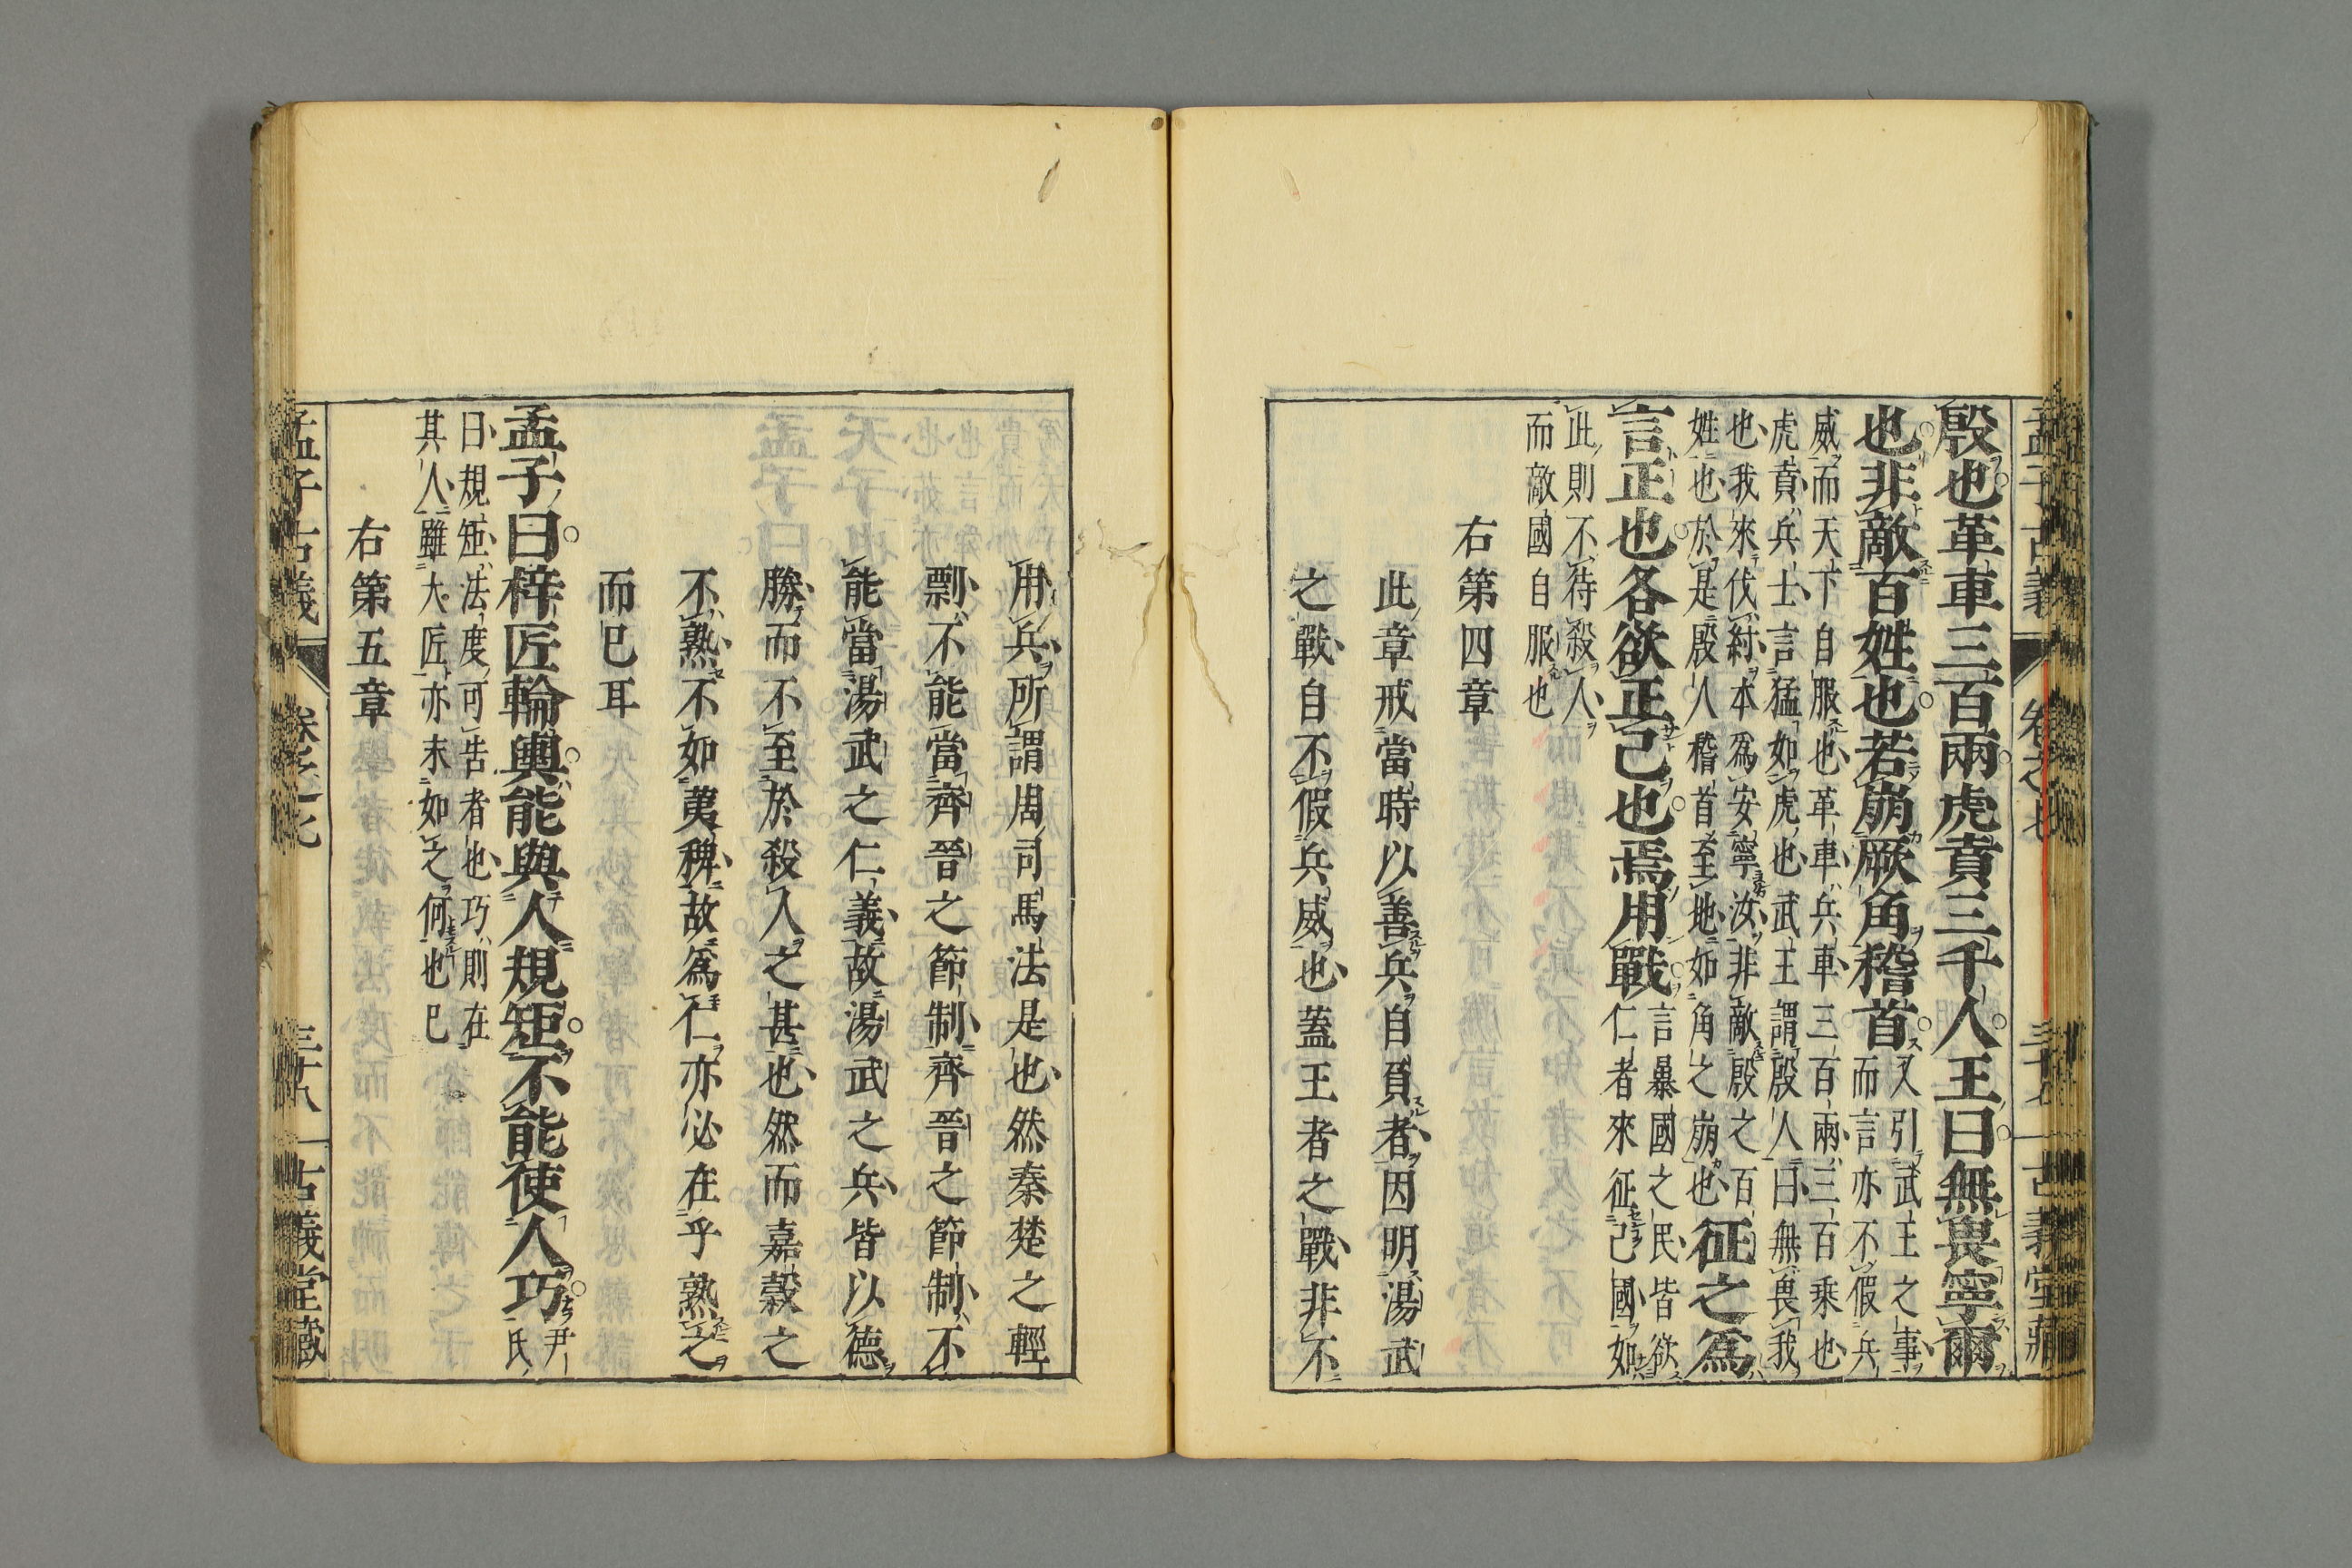 孟子古義 卷之七 三十七 古義堂藏
殷也革車三百兩虎賁三千人王曰無畏寧爾
也非敵百姓也若崩厥角稽首
又引武王之事
而言亦不假兵
威而天下自服也革車兵車三百兩三百乘也
虎賁兵士言猛如虎也武王謂殷人曰無畏我
也我來伐紂本爲安寧汝非敵殷之百
姓也於是殷人稽首至地如角之崩也
征之爲
言正也各欲正己也焉用戰
言暴國之民皆欲
仁者來征己國如
此則不待殺人
而敵國自服也
右第四章
此章戒當時以善兵自負者因明湯武
之戰自不假兵威也蓋王者之戰非不
用兵所謂周司馬法是也然秦楚之輕
剽不能當齊晉之節制齊晉之節制不
能當湯武之仁義故湯武之兵皆以德
勝而不至於殺人之甚也然而嘉穀之
不熟不如荑稗故爲仁亦必在乎熟之
而已耳
孟子曰梓匠輪輿能與人規矩不能使人巧
尹氏
曰規矩法度可告者也巧則在
其人雖大匠亦末如之何也已
右第五章
孟子古義 卷之七 三十八 古義堂藏